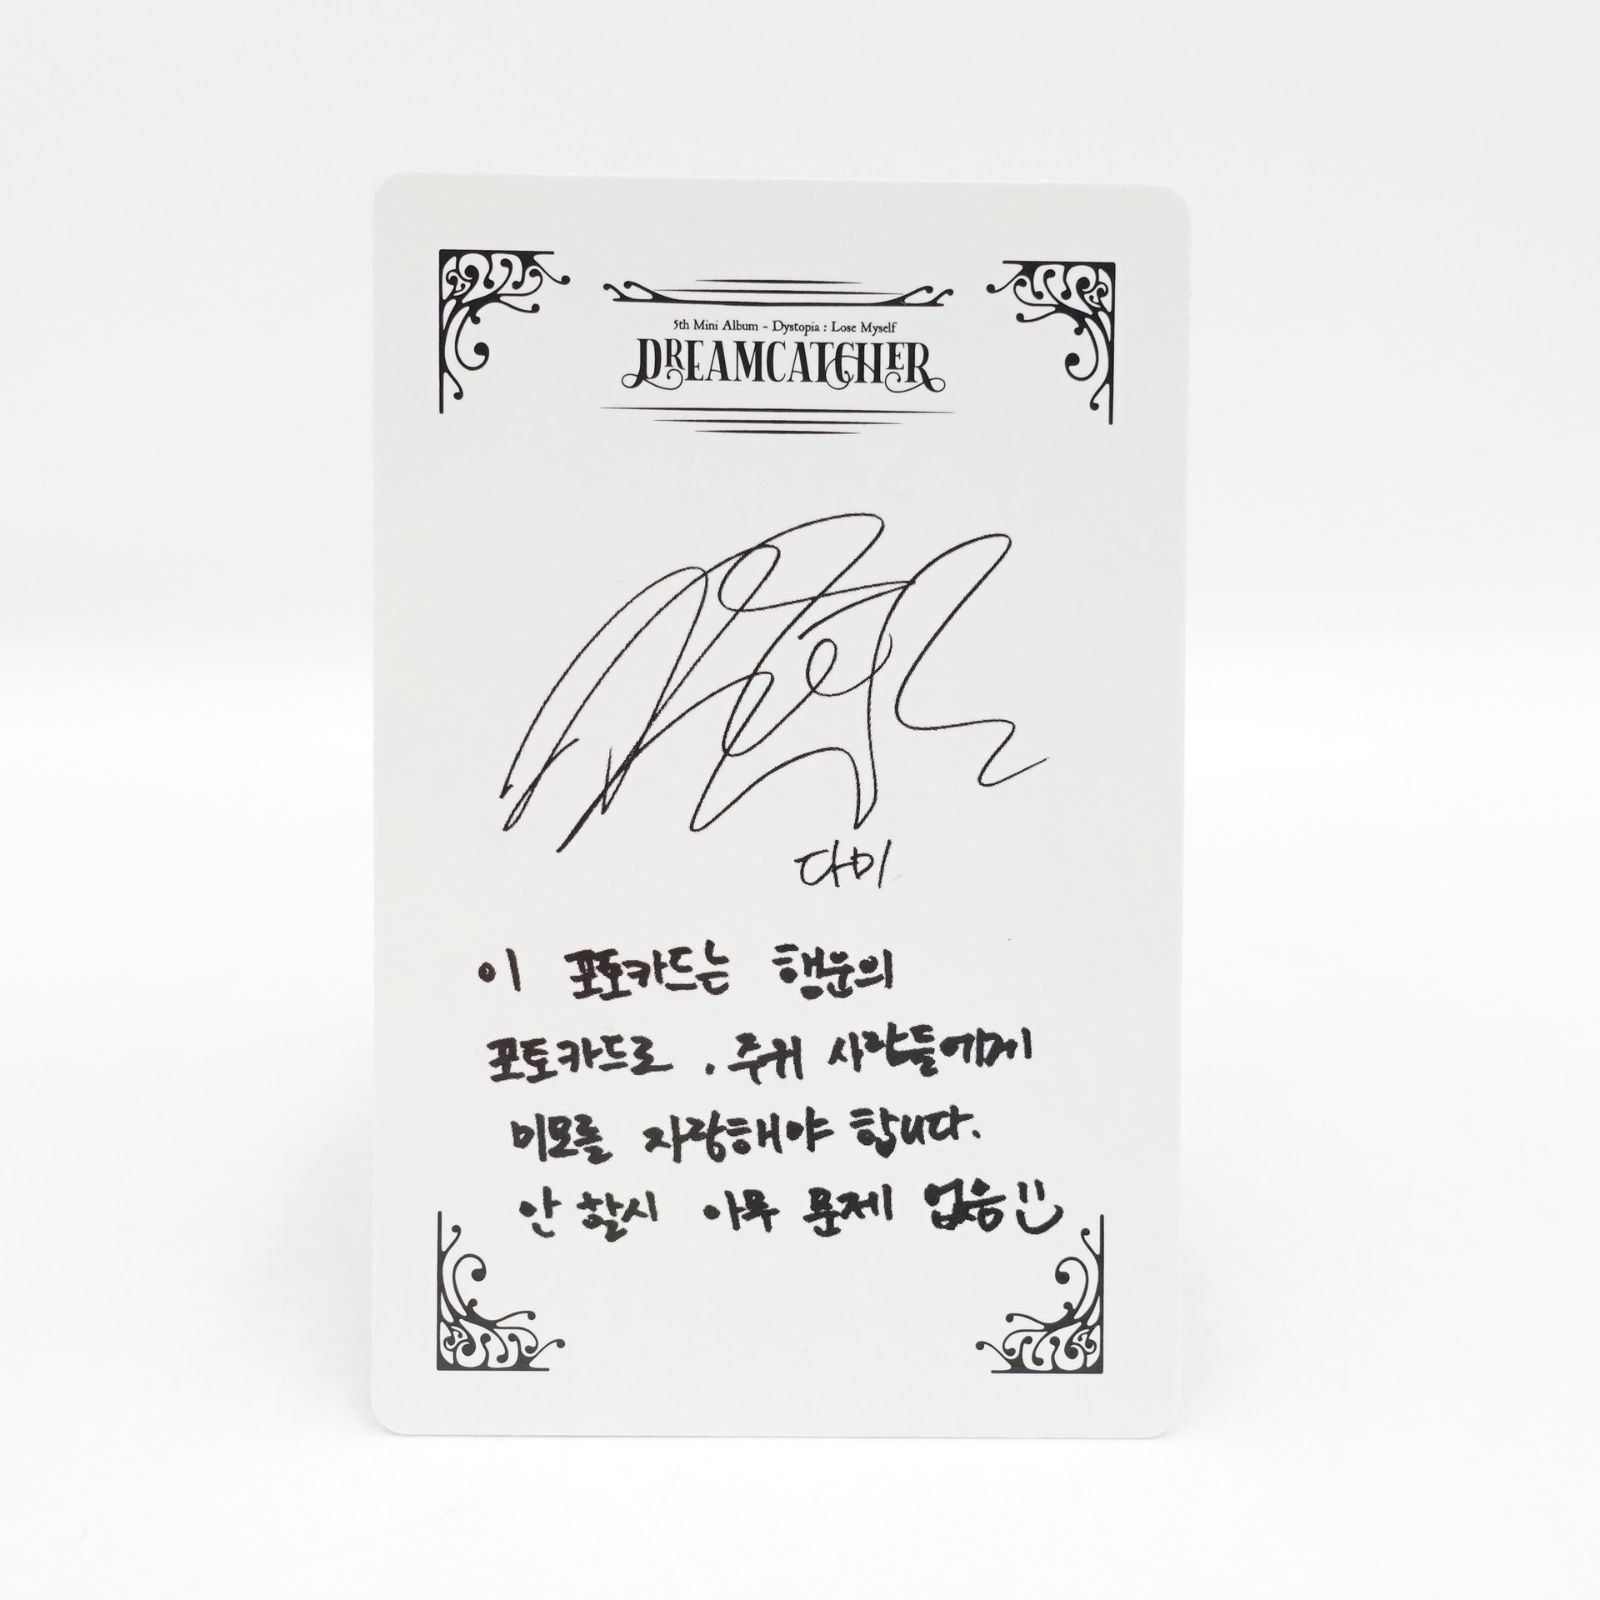 5th Mini Album - Dystopia : Lose Myself
DREAMCATCHER
다미
이 포토카드는 행운의
포토카드로 . 주위 사람들에게
미모를 자랑해야 합니다.
안 할시 아무 문제 없음